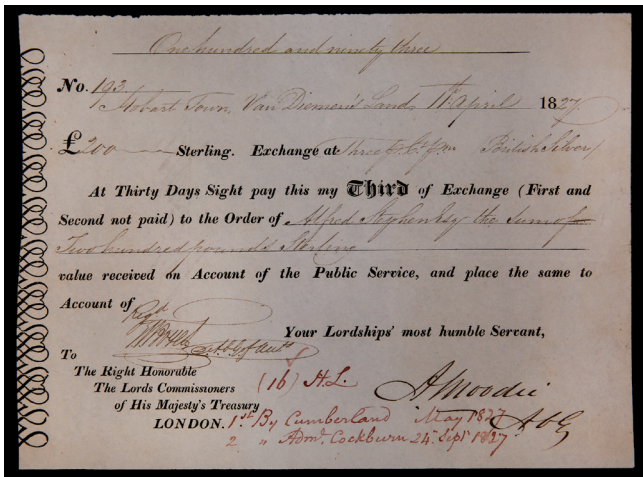 One hundred and ninety three
No. 193
Hobart Town, Van Diemen's Land, 11th April 1827
£200 Sterling. Exchange at Three p. Ct. British Silver
At Thirty Days Sight pay this my Third of Exchange (First and
Second not paid) to the Order of Alfred Stephen Esq the Sum of
Two hundred pounds Sterling
value received on Account of the Public Service, and place the same to
Account of
Regd
Your Lordships' most humble Servant,
To
The Right Honorable
The Lords Commissioners
of His Majesty's Treasury
LONDON.
(16) H.L.
A Moodie
A C G
1st By Cumberland May 1827
2 " Adml. Cockburn 24 Sept 1827